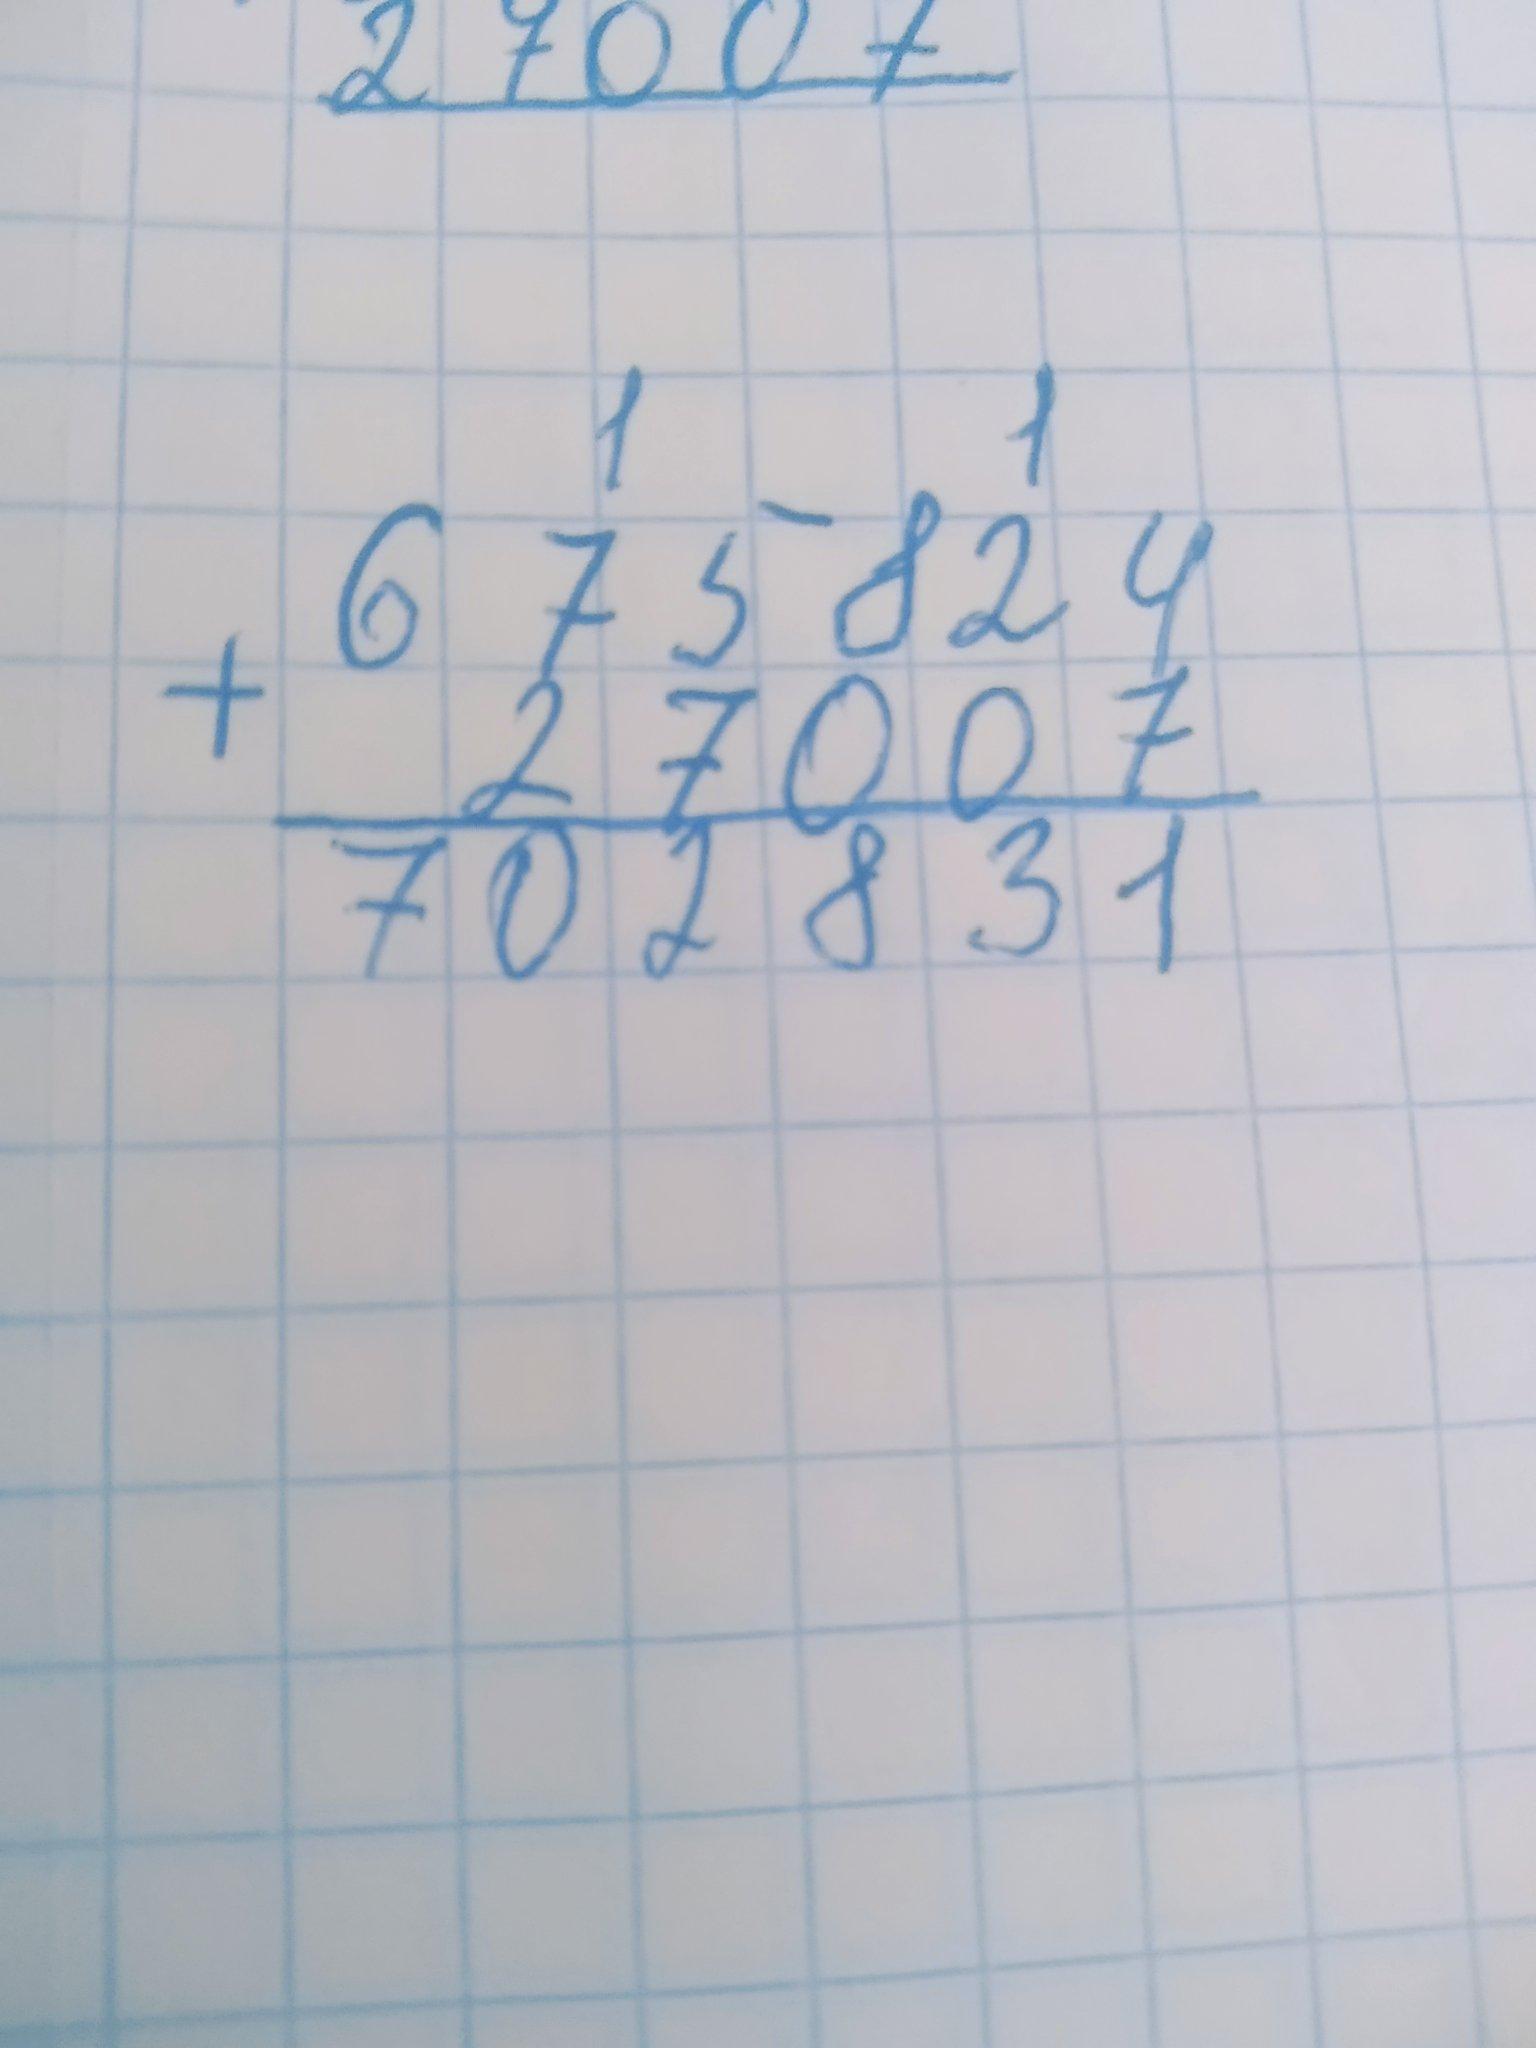 27007
1 1
675824
+
27007
702831